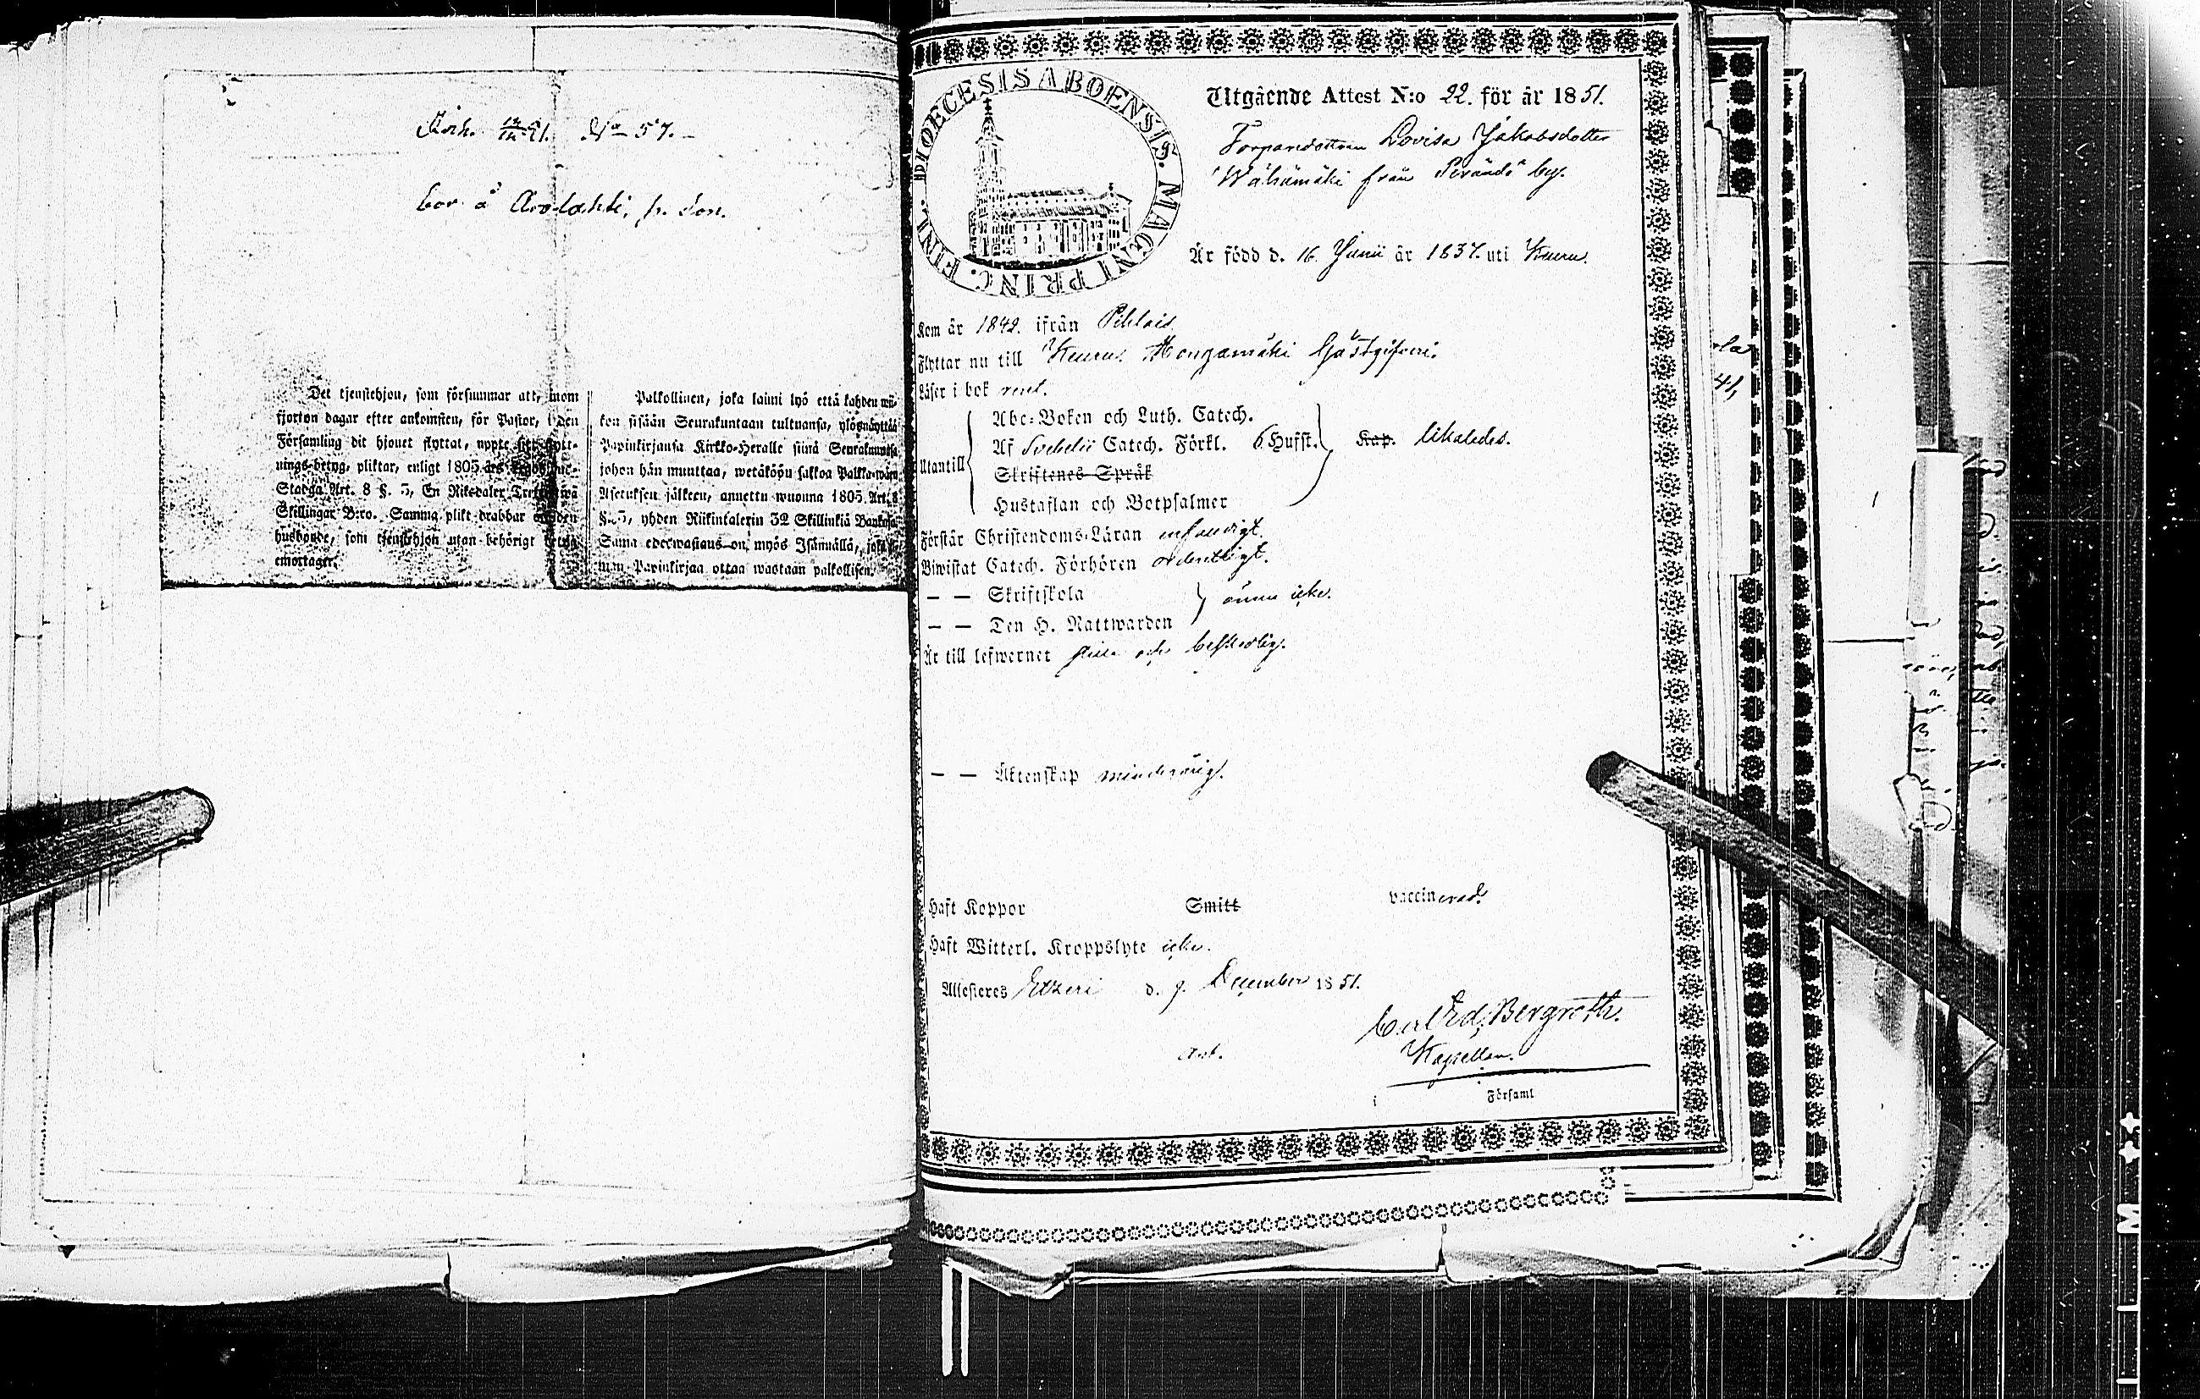 No 57.
bor å
Det tjenstehjon, som försummar att, inom
fjorton dagar efter ankomsten, för Pastor, i den
Församling dit hjonet flyttat, uppte sitt flytt-
nings-betyg, pliktar, enligt 1805 års
Stadga Art. 8 §. 5, En Riksdaler Trettiotwå
Skillingar B:co. Samma plikt drabbar
husbonde, som tjenstehjon utan behörigt
emottager.
Palkollinen, joka laimi lyö että kahden wii-
kon sisään Seurakuntaan tultuansa, ylösnäyttää
Papinkirjansa Kirkko-Heralle siinä Seurakunnassa
johon hän muuttaa, wetäköön sakkoa Palkka-wäen
Asetuksen jälkeen, annettu wuonna 1805. Art. 8
§. 5, yhden Riikintalerin 32 Skillinkiä Bankossa
Sama edeswastaus on myös Isännällä, joka
Papinkirjaa ottaa wastaan palkollisen.
DIOECESIS ABOENSIS. MAGNI PRINC. FINL.
Utgående Attest N:o 22. för år 1851.
Lovisa Jakobsdotter
Wähämäki från by.
Är född d. 16 Junii år 1837. uti Keuru.
Kom år 1842. ifrån Pihlais.
Flyttar nu till Keuru Gästgifveri.
Läser i bok rent.
Utantill
Abc-Boken och Luth. Catech.
Af Svebelii Catech. Förkl. 6 Hufst. Kap. likaledes.
Skriftenes Språk
Hustaflan och Botpsalmer
Förstår Christendoms-Läran enfaldigt.
Biwistat Catech. Förhören ordentligt.
— — Skriftskola
ännu icke.
— — Den H. Nattwarden
Är till lefwernet stilla och beskedlig.
— — Äktenskap minderårig.
Haft Koppor Smitt vaccinerad.
Haft Witterl. Kroppslyte icke.
Attesteres Etzeri d. 9. December 1851.
Carl Ed. Bergroth.
Kapellan.
i Församl